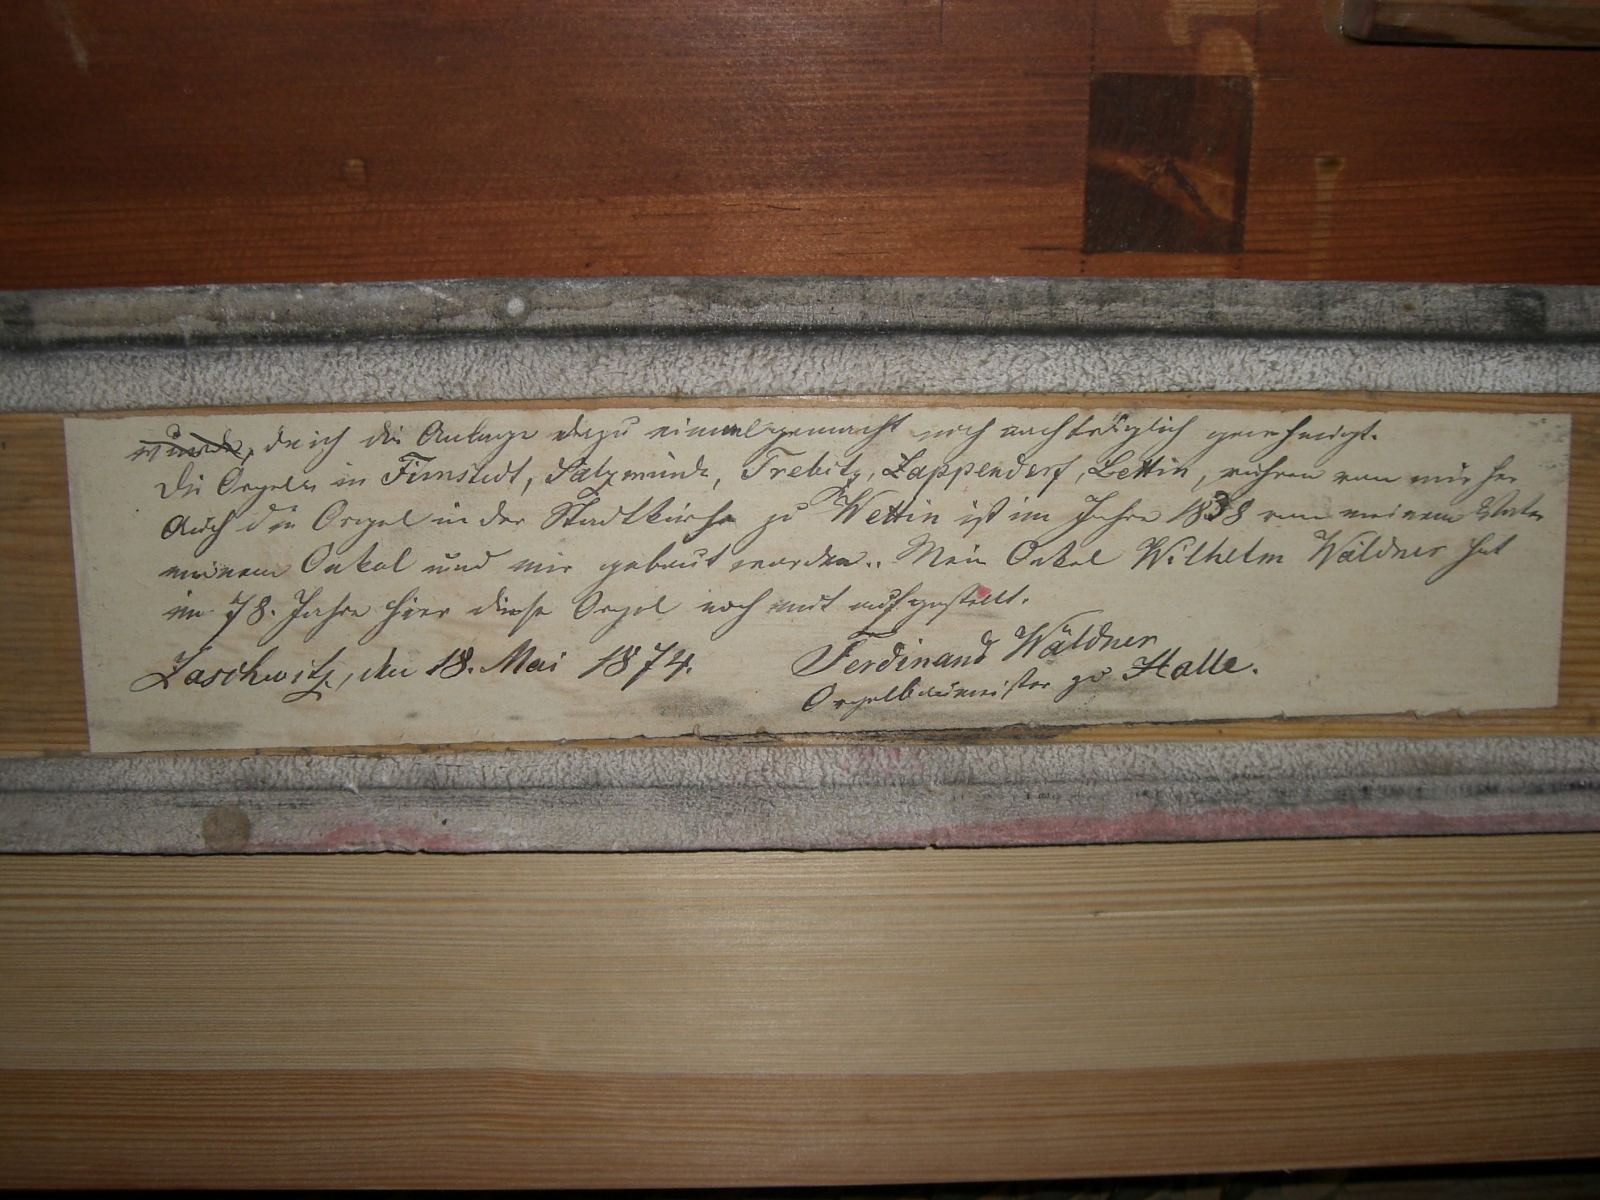 wurde, da ich die Anlage dazu einmal gemacht noch nachträglich genehmigt.
Die Orgeln in Fienstedt, Salzmünde, Trebitz, Zappendorf, Lettin, rühren von mir her
Auch die Orgel in der Stadtkirche zu Wettin ist im Jahre 1838 von meinem Vater
meinem Onkel und mir gebaut worden. Mein Onkel Wilhelm Wäldner hat
im 78. Jahre hier diese Orgel noch mit aufgestellt.
Zaschwitz, den 18. Mai 1874.
Ferdinand Wäldner
Orgelbaumeister zu Halle.